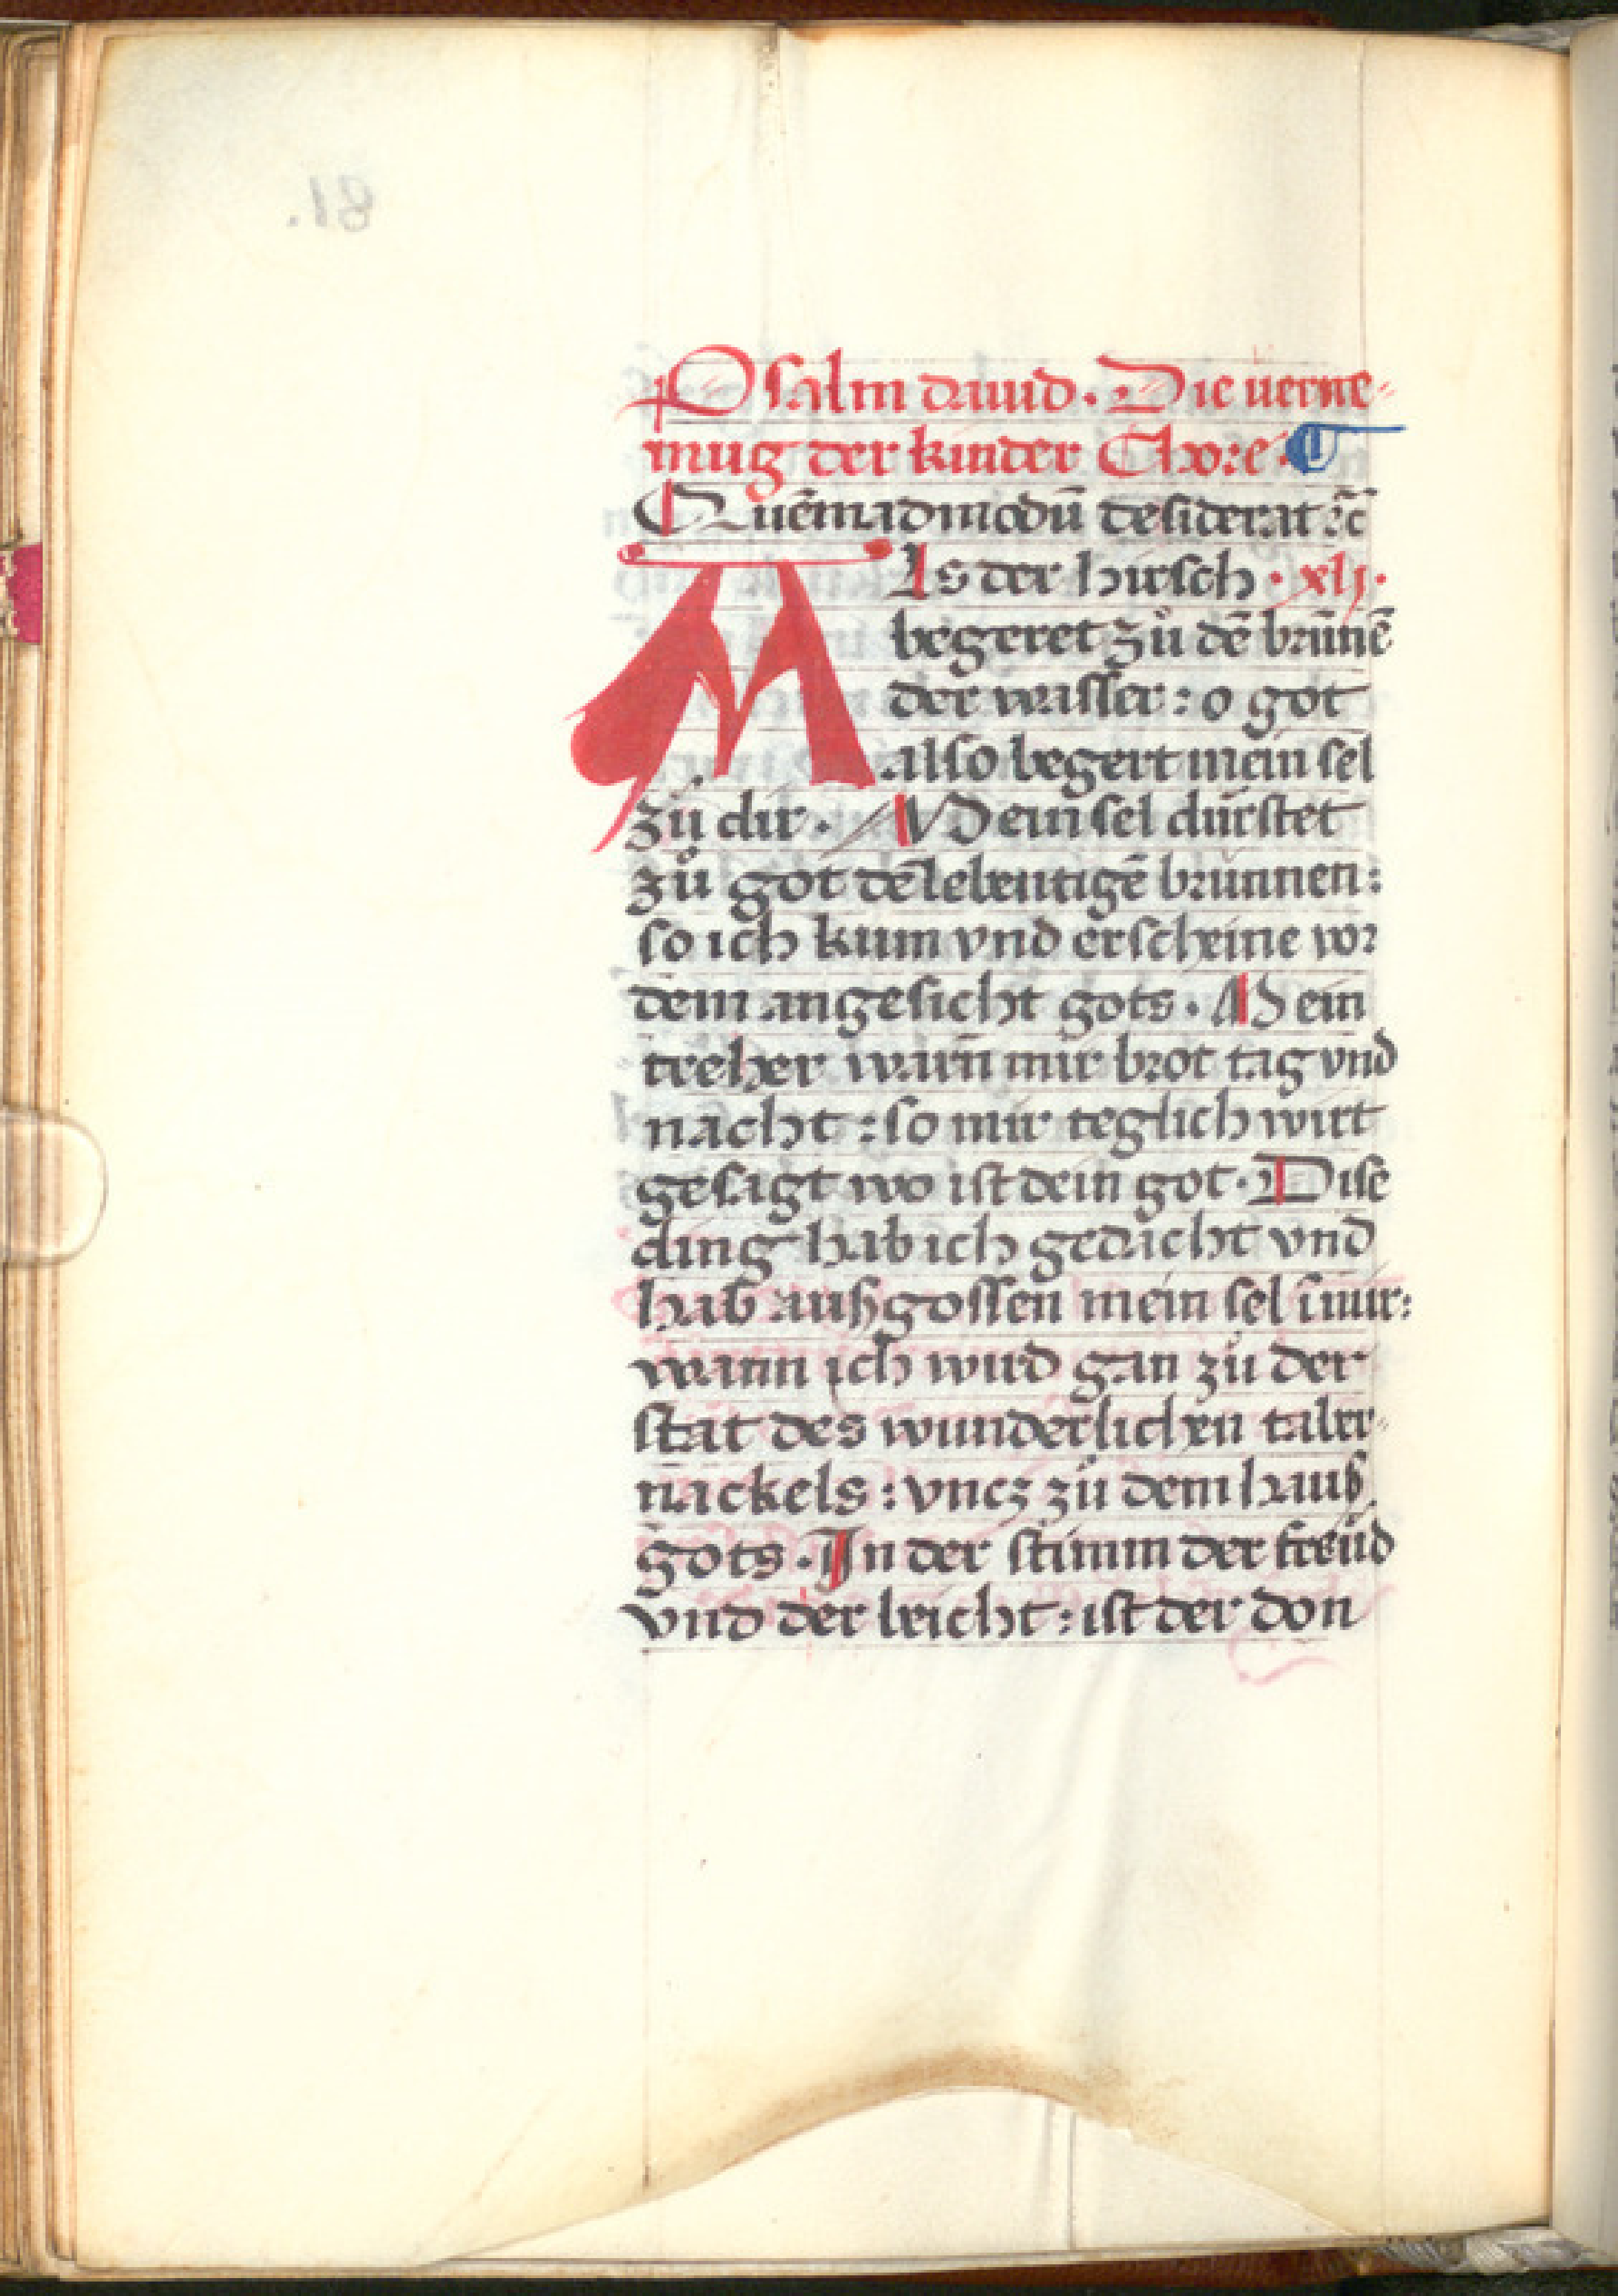 Psalm dauid · Die verne-
mug der kinder Chore ·
Quēmadmodū desiderat ⁊c̄
Als der hirsch · xlj ·
begeret zů dē brūnē
der wasser : o got
also begert mein sel
zů dir · Mein sel dürstet
zů got dē lebentigē brünnen :
so ich kum vnd erscheine vor
dem angesicht gots · Mein
treher warn̄ mir brot tag vnd
nacht : so mir teglich wirt
gesagt wo ist dein got · Dise
ding hab ich gedacht vnd
hab außgossen mein sel ī mir :
wann ich wird gan zů der
stat des wunderlichen taber-
nackels : vncz zů dem hauß
gots · In der stimm der freüd
vnd der beicht : ist der don
81.